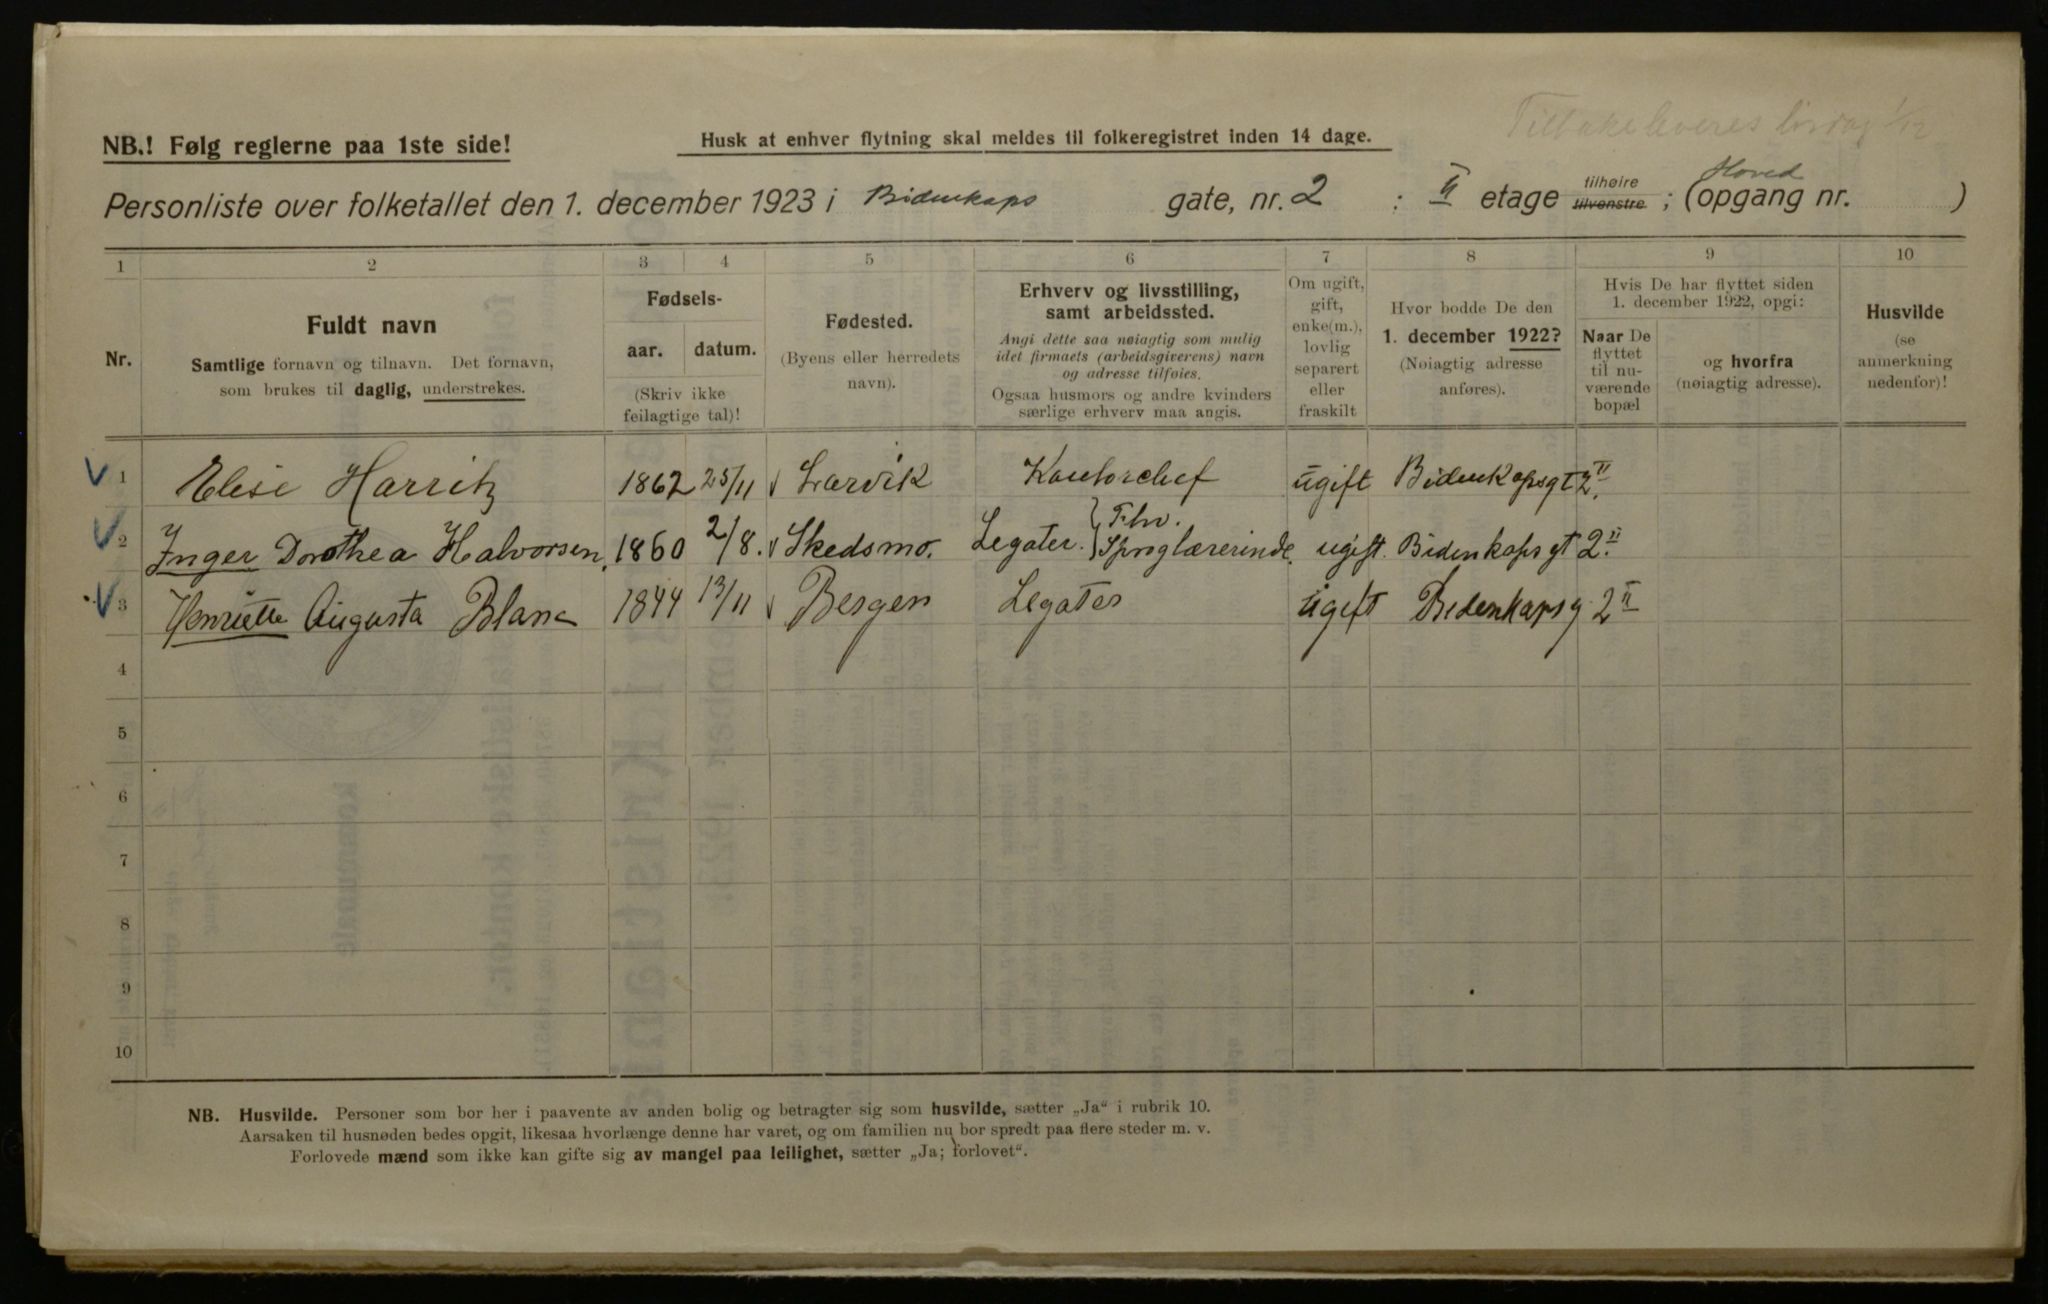 Tilbakeleveres lørdag 1/12
NB.! Følg reglerne paa 1ste side!
Husk at enhver flytning skal meldes til folkeregistret inden 14 dage.
Personliste over folketallet den 1. december 1923 i Bidenkaps gate, nr. 2 : II etage tilhøire tilvenstre ; (opgang nr. Hoved )
1 2 3 4 5 6 7 8 9 10
Nr.
Fuldt navn
Samtlige fornavn og tilnavn. Det fornavn,
som brukes til daglig, understrekes.
Fødsels-
aar. datum.
(Skriv ikke
feilagtige tal)!
Fødested.
(Byens eller herredets
navn).
Erhverv og livsstilling,
samt arbeidssted.
Angi dette saa nøiagtig som mulig
idet firmaets (arbeidsgiverens) navn
og adresse tilføies.
Ogsaa husmors og andre kvinders
særlige erhverv maa angis.
Om ugift,
gift,
enke(m.),
lovlig
separert
eller
fraskilt
Hvor bodde De den
1. december 1922?
(Nøiagtig adresse
anføres).
Hvis De har flyttet siden
1. december 1922, opgi:
Naar De
flyttet
til nu-
værende
bopæl
og hvorfra
(nøiagtig adresse).
Husvilde
(se
anmerkning
nedenfor)!
1 Elise Harritz 1862 25/11 Larvik Kontorchef ugift Bidenkapsgt 2 II
2 Inger Dorothea Halvorsen, 1860 2/8. Skedsmo. Legater. } Fhv. Sproglærerinde. ugift. Bidenkaps gt 2 II
3 Henriette Augusta Blanc 1844 13/11 Bergen Legater ugift Bidenkapsg 2 II
4
5
6
7
8
9
10
NB. Husvilde. Personer som bor her i paavente av anden bolig og betragter sig som husvilde, sætter „Ja“ i rubrik 10.
Aarsaken til husnøden bedes opgit, likesaa hvorlænge denne har varet, og om familien nu bor spredt paa flere steder m. v.
Forlovede mænd som ikke kan gifte sig av mangel paa leilighet, sætter „Ja; forlovet“.